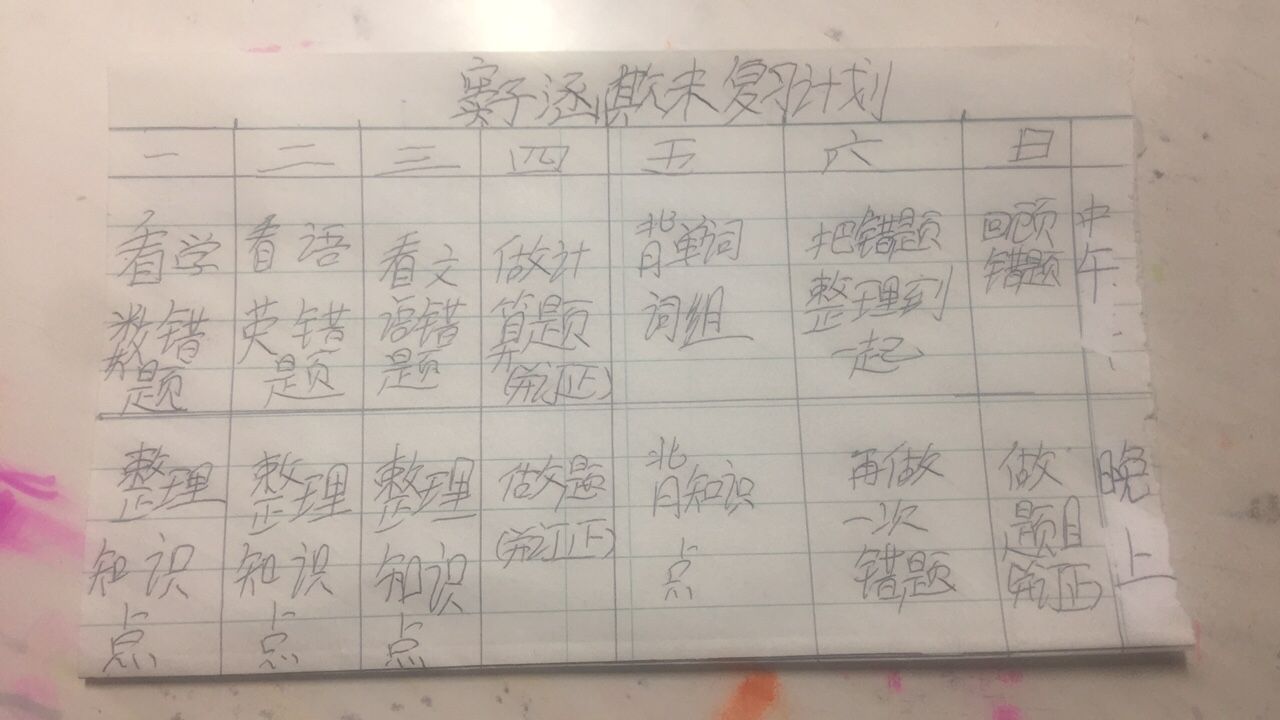 窦子涵期末复习计划
一 二 三 四 五 六 日
看学
数错
题
看语
英错
题
看文
语错
题
做计
算题
(并订正)
背单词
词组
把错题
整理到
一起
回顾
错题
中
午
整理
知识
点
整理
知识
点
整理
知识
点
做题
(并订正)
背知识
点
再做
一次
错题
做
题目
(并订正)
晚
上